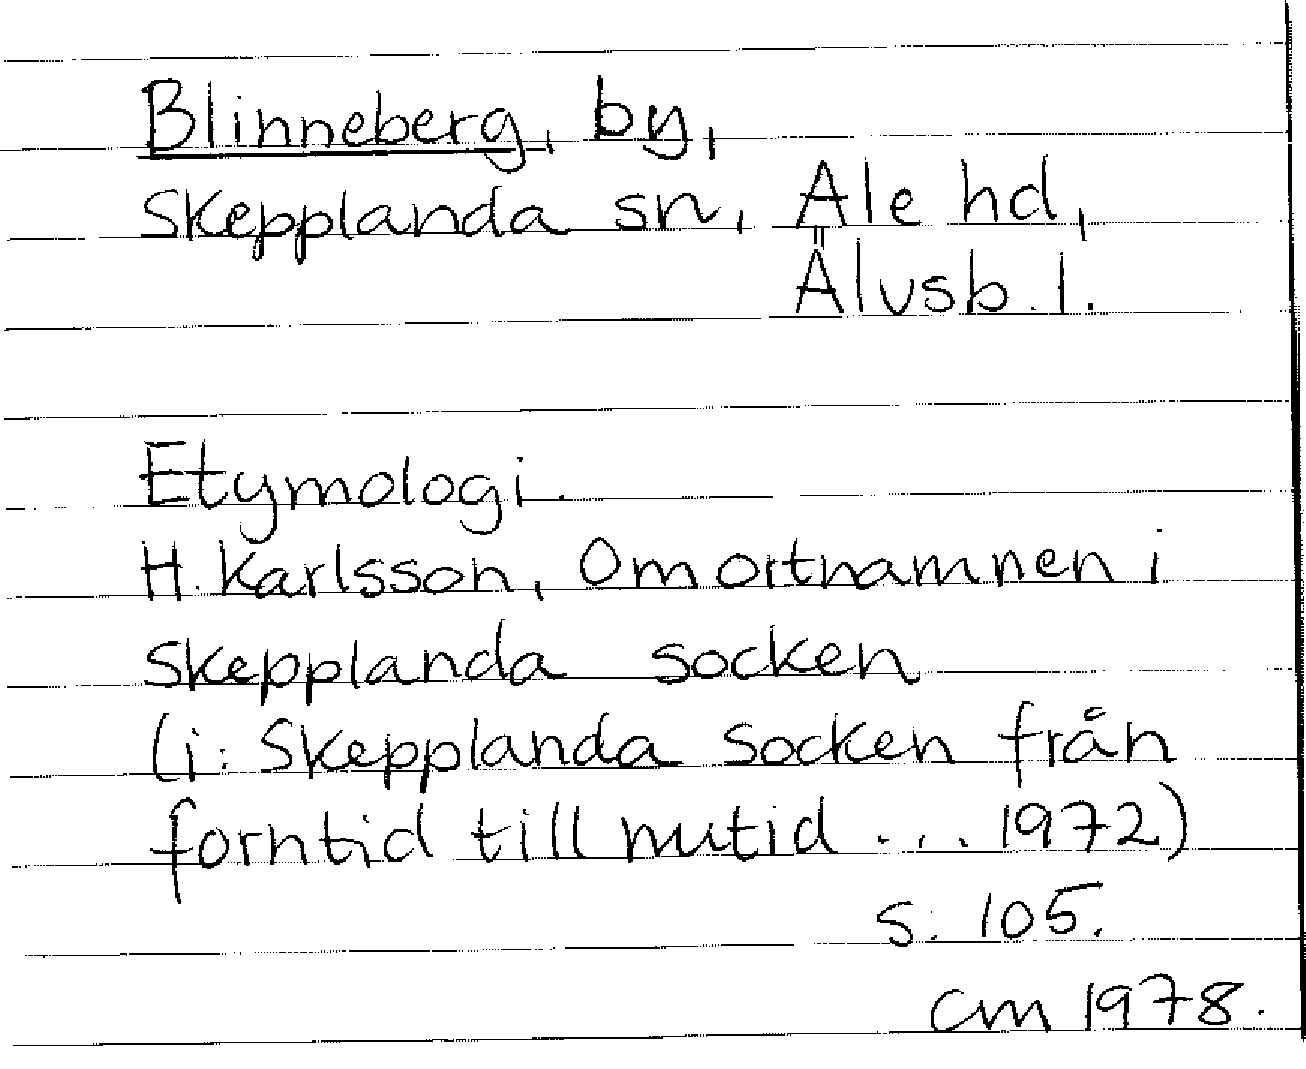 Blinneberg, by,
Skepplanda sn, Ale hd,
Älvsb. l.
Etymologi.
H. Karlsson, Om ortnamnen i
Skepplanda socken
(i: Skepplanda socken från
forntid till nutid ... 1972)
s. 105.
CM 1978.